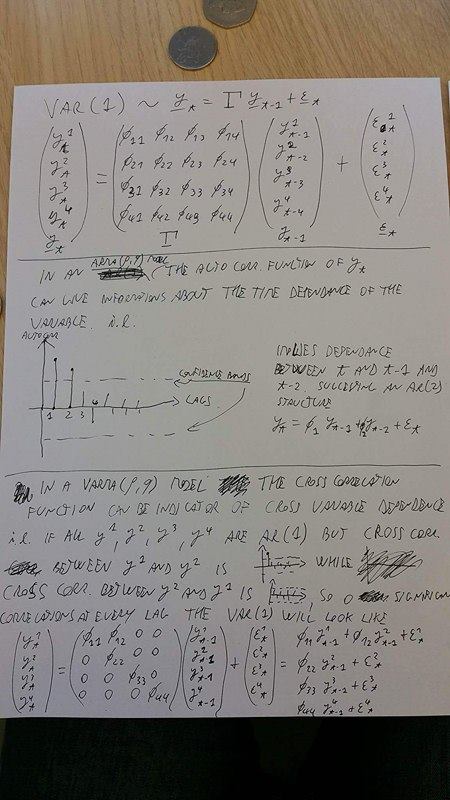 VAR(1) ~ y_t = Γ y_t-1 + ε_t
(y^1_t) = (φ11 φ12 φ13 φ14) (y^1_t-1) + (ε^1_t)
(y^2_t) (φ21 φ22 φ23 φ24) (y^2_t-2) (ε^2_t)
(y^3_t) (φ31 φ32 φ33 φ34) (y^3_t-3) (ε^3_t)
(y^4_t) (φ41 φ42 φ43 φ44) (y^4_t-4) (ε^4_t)
y_t Γ y_t-1 ε_t
IN AN ARMA(P,9) MODEL THE AUTO CORR. FUNCTION OF y_t
CAN GIVE INFORMATIONS ABOUT THE TIME DEPENDANCE OF THE
VARIABLE. i.e.
AUTOCORR
CONFIDENCE BANDS
LAGS
1 2 3 4
IMPLIES DEPENDANCE
BETWEEN t AND t-1 AND
t-2, SUGGESTING AN AR(2)
STRUCTURE
y_t = φ1 y_t-1 + φ2 y_t-2 + ε_t
IN A VARMA(P,9) MODEL THE CROSS CORRELATION
FUNCTION CAN BE INDICATOR OF CROSS VARIABLE DEPENDENCE
i.e. IF ALL y^1, y^2, y^3, y^4 ARE AR(1) BUT CROSS CORR.
BETWEEN y^1 AND y^2 IS WHILE
CROSS CORR. BETWEEN y^2 AND y^1 IS , SO 0 SIGNIFICAN
CORRELATIONS AT EVERY LAG THE VAR(1) WILL LOOK LIKE
(y^1_t) = (φ11 φ12 0 0) (y^1_t-1) + (ε^1_t) = φ11 y^1_t-1 + φ12 y^2_t-1 + ε^1_t
(y^2_t) (0 φ22 0 0) (y^2_t-1) (ε^2_t) φ22 y^2_t-1 + ε^2_t
(y^3_t) (0 0 φ33 0) (y^3_t-1) (ε^3_t) φ33 y^3_t-1 + ε^3_t
(y^4_t) (0 0 0 φ44) (y^4_t-1) (ε^4_t) φ44 y^4_t-1 + ε^4_t